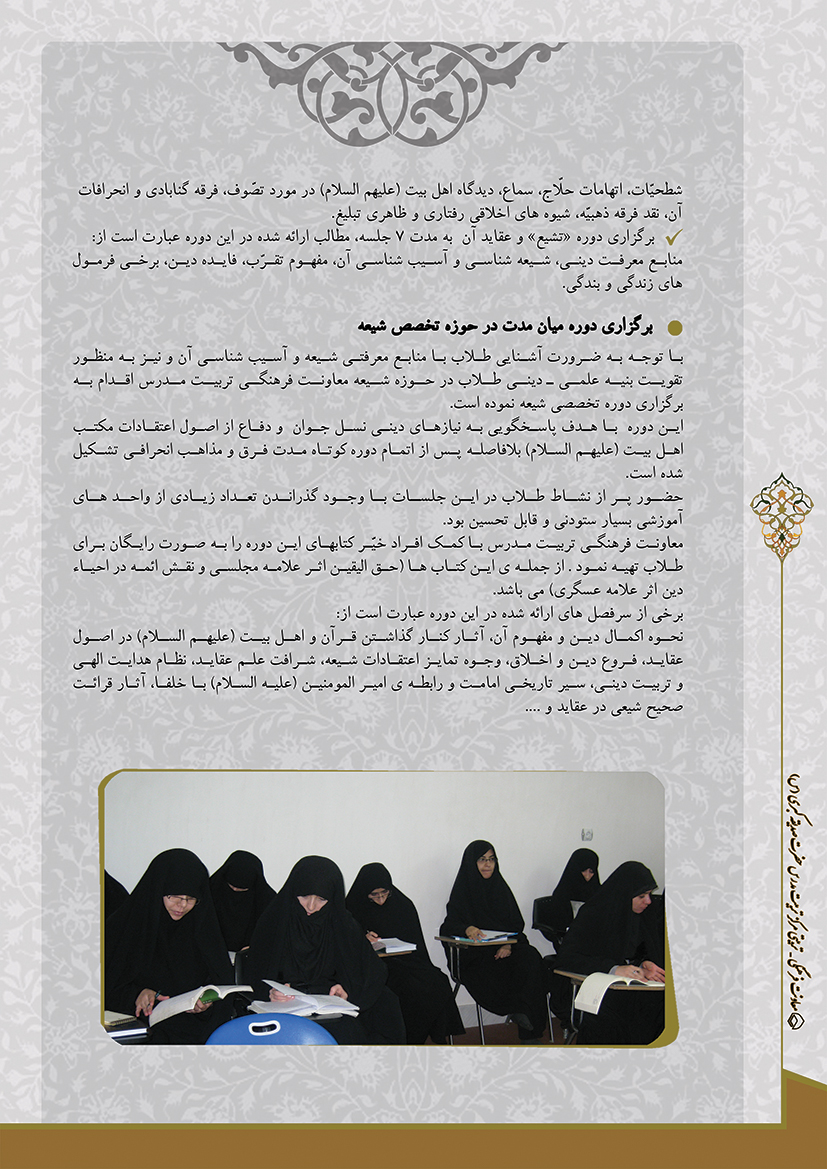 شطحیّات، اتهامات حلّاج، سماع، دیدگاه اهل بیت (علیهم السلام) در مورد تصّوف، فرقه گنابادی و انحرافات
آن، نقد فرقه ذهبیّه، شیوه های اخلاقی رفتاری و ظاهری تبلیغ.
✓ برگزاری دوره «تشیع» و عقاید آن به مدت ۷ جلسه، مطالب ارائه شده در این دوره عبارت است از:
منابع معرفت دینی، شیعه شناسی و آسیب شناسی آن، مفهوم تقرّب، فایده دین، برخی فرمول
های زندگی و بندگی.
● برگزاری دوره میان مدت در حوزه تخصص شیعه
با توجه به ضرورت آشنایی طلاب با منابع معرفتی شیعه و آسیب شناسی آن و نیز به منظور
تقویت بنیه علمی ـ دینی طلاب در حوزه شیعه معاونت فرهنگی تربیت مدرس اقدام به
برگزاری دوره تخصصی شیعه نموده است.
این دوره با هدف پاسخگویی به نیازهای دینی نسل جوان و دفاع از اصول اعتقادات مکتب
اهل بیت (علیهم السلام) بلافاصله پس از اتمام دوره کوتاه مدت فرق و مذاهب انحرافی تشکیل
شده است.
حضور پر از نشاط طلاب در این جلسات با وجود گذراندن تعداد زیادی از واحد های
آموزشی بسیار ستودنی و قابل تحسین بود.
معاونت فرهنگی تربیت مدرس با کمک افراد خیّر کتابهای این دوره را به صورت رایگان برای
طلاب تهیه نمود . از جمله ی این کتاب ها (حق الیقین اثر علامه مجلسی و نقش ائمه در احیاء
دین اثر علامه عسگری) می باشد.
برخی از سرفصل های ارائه شده در این دوره عبارت است از:
نحوه اکمال دین و مفهوم آن، آثار کنار گذاشتن قرآن و اهل بیت (علیهم السلام) در اصول
عقاید، فروع دین و اخلاق، وجوه تمایز اعتقادات شیعه، شرافت علم عقاید، نظام هدایت الهی
و تربیت دینی، سیر تاریخی امامت و رابطه ی امیر المومنین (علیه السلام) با خلفا، آثار قرائت
صحیح شیعی در عقاید و ....
معاونت فرهنگی - تربیتی مرکز تربیت مدرس حضرت صدیقه کبری (س)